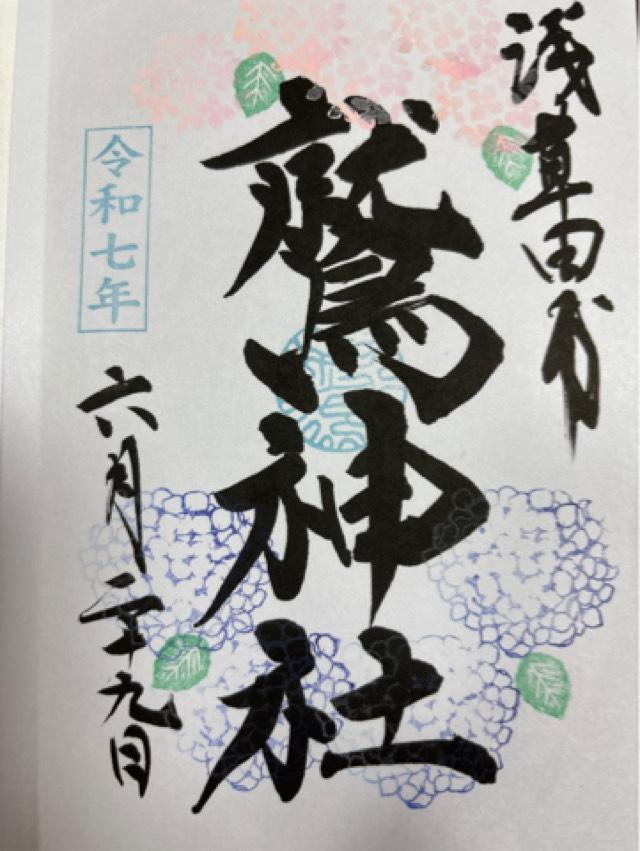 浅草田甫
鷲神社
令和七年
六月二十九日